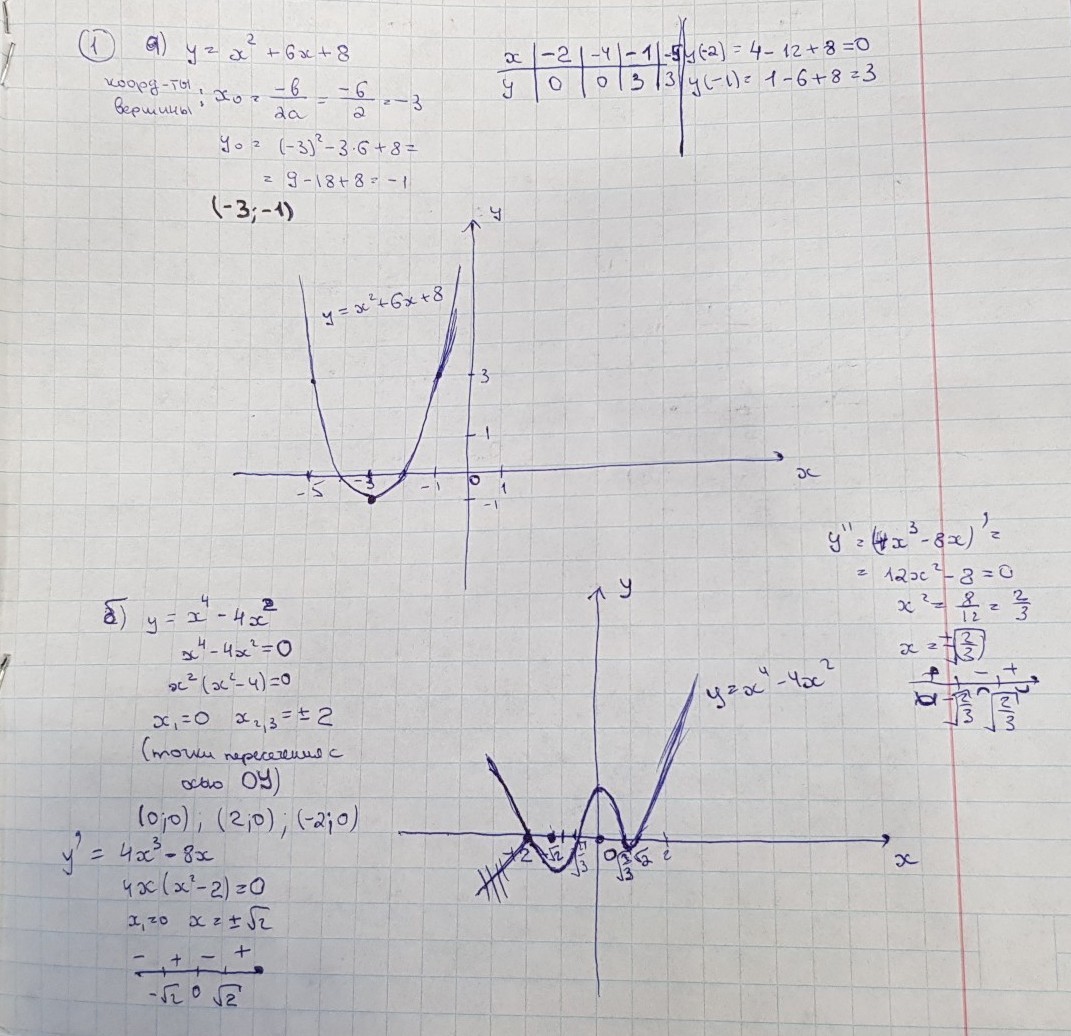 ① а) y = x² + 6x + 8
коорд-ты вершины: x₀ = -b/2a = -6/2 = -3
y₀ = (-3)² - 3·6 + 8 =
= 9 - 18 + 8 = -1
(-3; -1)
x | -2 | -4 | -1 | -5
y | 0 | 0 | 3 | 3
y(-2) = 4 - 12 + 8 = 0
y(-1) = 1 - 6 + 8 = 3
y
y = x² + 6x + 8
3
1
-5 -3 -1 0 1 x
-1
б) y = x⁴ - 4x²
x⁴ - 4x² = 0
x²(x² - 4) = 0
x₁ = 0 x₂,₃ = ± 2
(точки пересечения с
осью OY)
(0;0); (2;0); (-2;0)
y' = 4x³ - 8x
4x(x² - 2) = 0
x₁ = 0 x = ± √2
- + - +
-√2 0 √2
y
y = x⁴ - 4x²
-2 -√2 0 √2 2 x
y'' = (4x³ - 8x)' =
= 12x² - 8 = 0
x² = 8/12 = 2/3
x = ±√(2/3)
+ - +
-√(2/3) √(2/3)